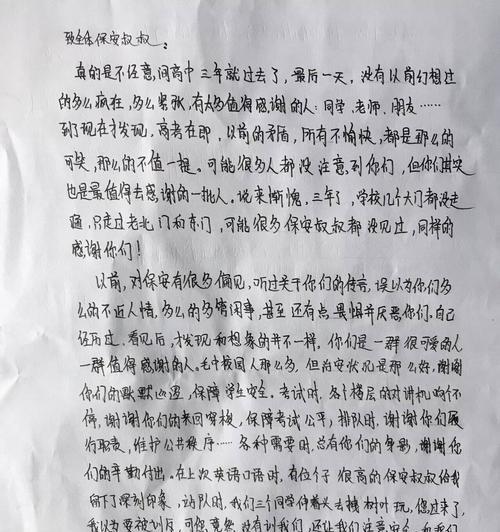 致全体保安叔叔：
真的是不经意间高中三年就过去了，最后一天，没有以前幻想过
的多么疯狂，多么紧张，有太多值得感谢的人：同学、老师、朋友……
到了现在才发现，高考在即，以前的矛盾，所有不愉快，都是那么的
可笑，那么的不值一提。可能很多人都没注意到你们，但你们其实
也是最值得去感谢的一批人。说来惭愧，三年了，学校几个大门都没走
通，只走过老北门和东门，可能很多保安叔叔都没见过，同样的
感谢你们！
以前，对保安有很多偏见，听过关于你们的传言，误以为你们多
么的不近人情，多么的多管闲事，甚至还有点畏惧并厌恶你们。自己
经历过、看见后，才发现和想象的并不一样，你们是一群很可爱的人
一群值得感谢的人。毛中校园人那么多，但治安状况是那么好，谢谢
你们的默默巡逻，保障学生安全。考试时，各个楼层的对讲机响个不
停，谢谢你们的来回穿梭，保障考试公平，排队时，谢谢你们履
行职责，维护公共秩序……各种需要时，总有你们的身影，谢谢你
们的辛勤付出。在上次英语口语时，有位个子很高的保安叔叔给我
留下了深刻印象，站队时，我们三个同学伸着头去摘树叶玩，您过来了，
我以为要被训斥，可您竟然没有训我们，还让我们注意安全，和我们